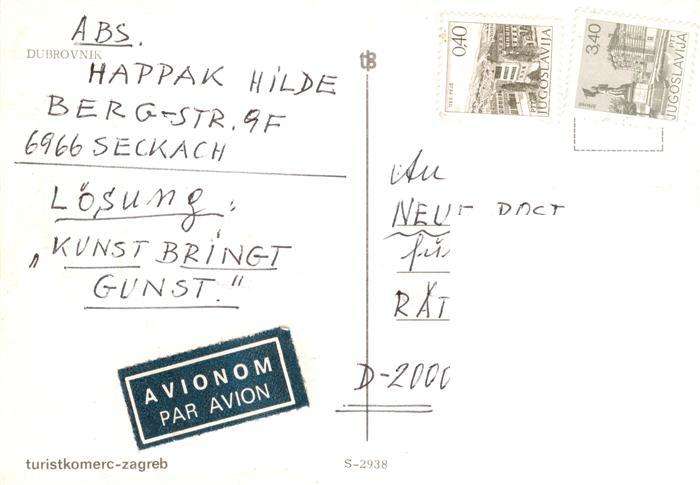 ABS.
DUBROVNIK
HAPPAK HILDE
BERG-STR. 9F
6966 SECKACH
LÖSUNG:
„KUNST BRINGT
GUNST."
AVIONOM
PAR AVION
turistkomerc-zagreb
S-2938
0,40
JUGOSLAVIJA
3,40
JUGOSLAVIJA
An
NEUE POST
für
RÄT
D-2000